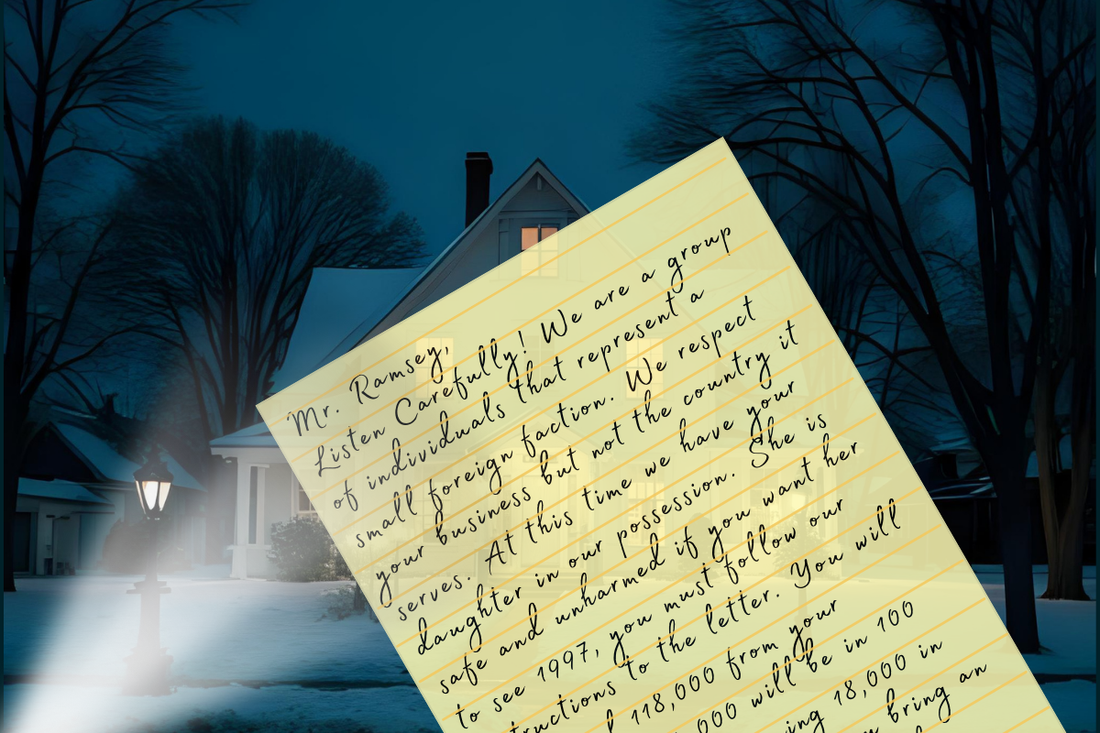 Mr. Ramsey,
Listen Carefully! We are a group
of individuals that represent a
small foreign faction. We respect
your business but not the country it
serves. At this time we have your
daughter in our possession. She is
safe and unharmed if you want her
to see 1997, you must follow our
tructions to the letter. You will
118,000 from your
000 will be in 100
ing 18,000 in
bring an